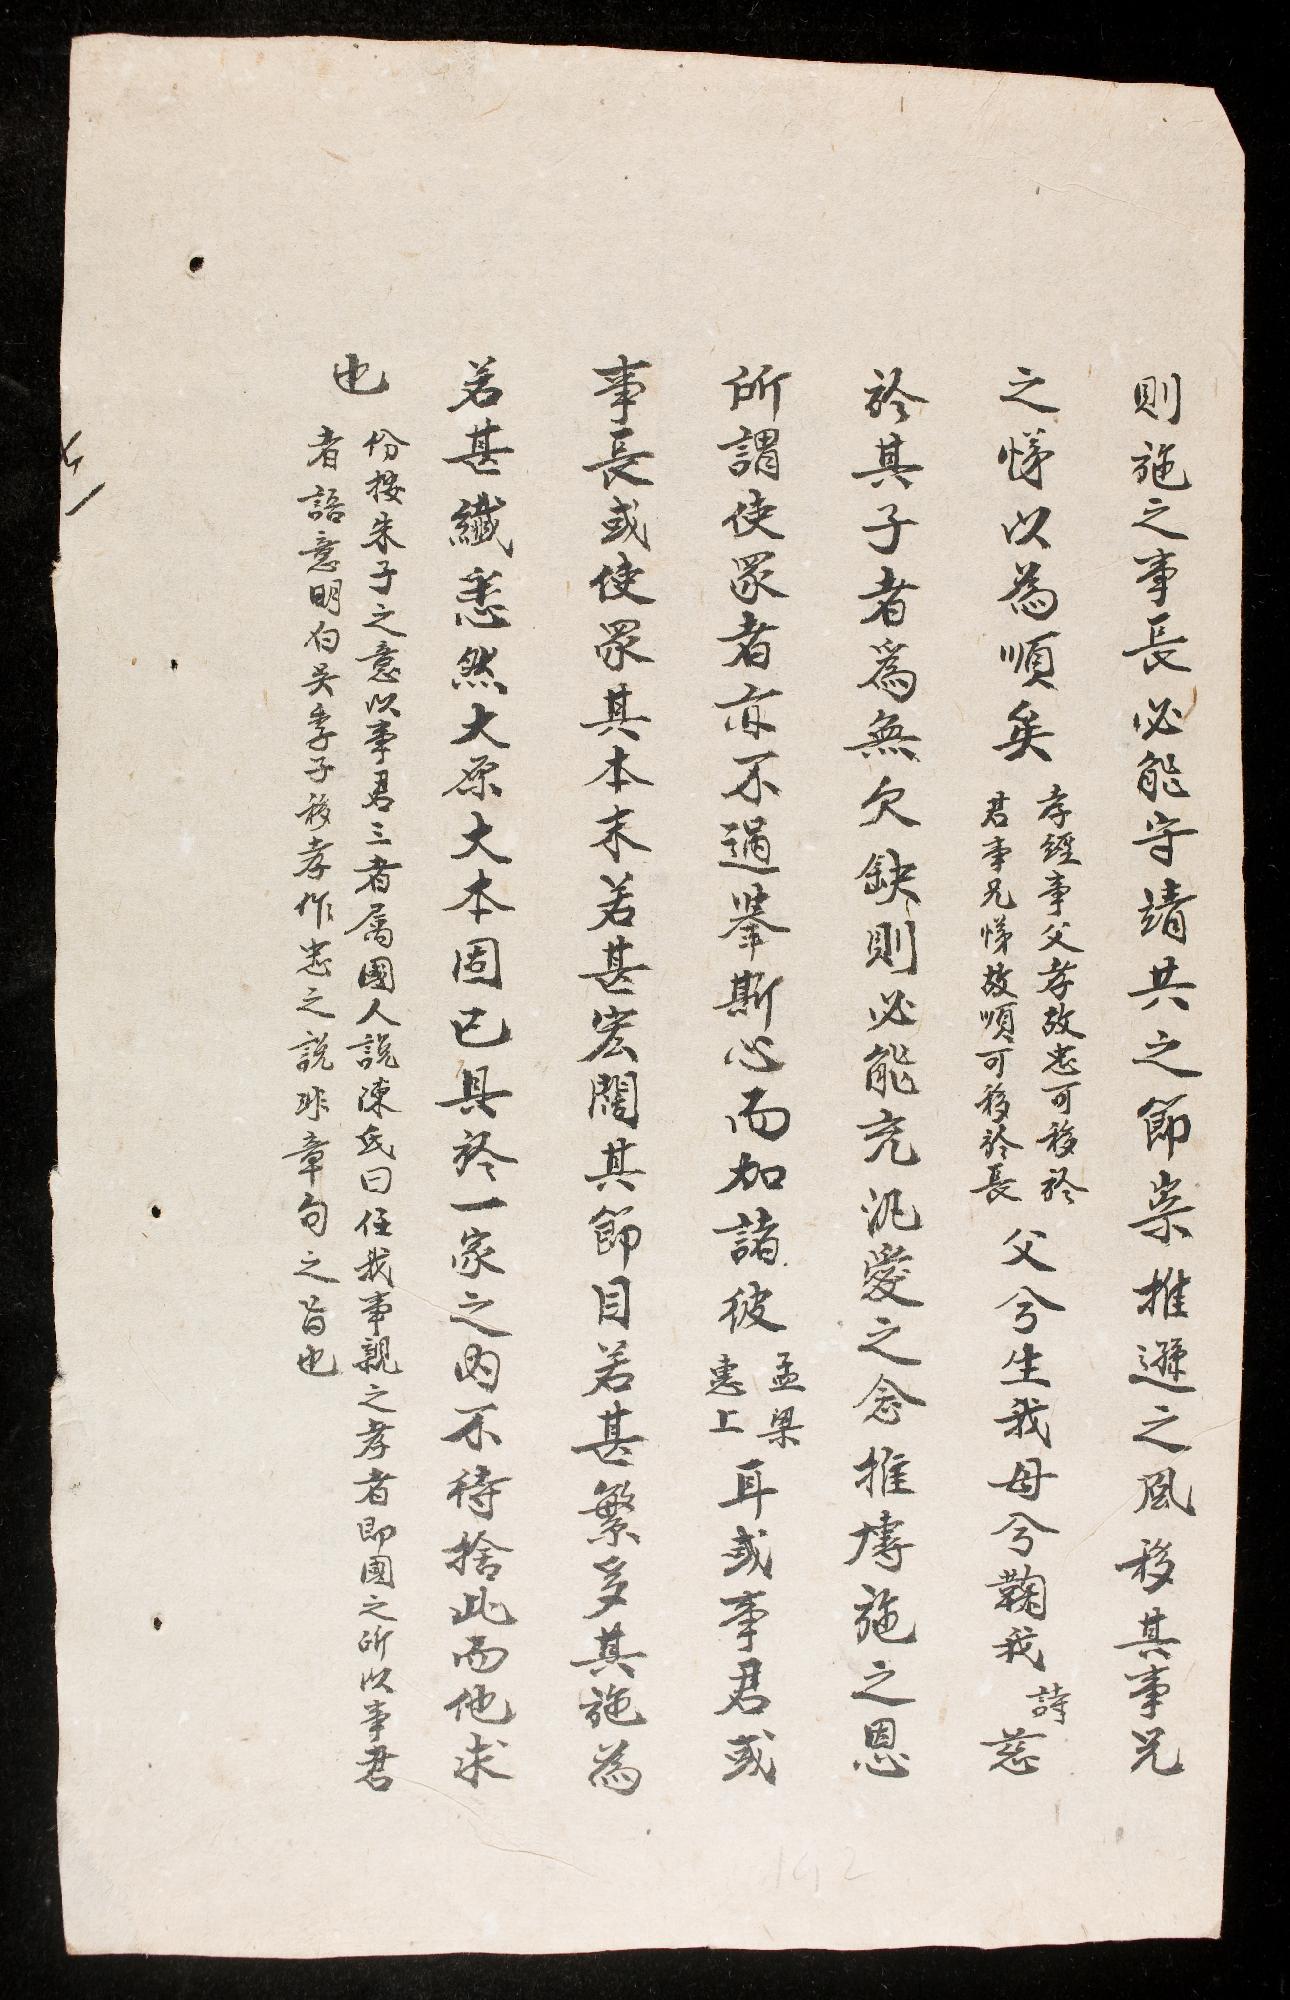 則施之事長必能守靖共之節崇推遜之風移其事兄
之悌以為順矣
孝經事父孝故忠可移於
君事兄悌故順可移於長
父兮生我母兮鞠我
詩
慈
於其子者爲無欠缺則必能充汎愛之念推博施之恩
所謂使眾者亦不過舉斯心而加諸彼
孟梁
惠上
耳或事君或
事長或使眾其本末若甚宏闊其節目若甚繁多其施為
若甚纖悉然大原大本固已具於一家之內不待捨此而他求
也
份按朱子之意以事君三者屬國人說陳氏曰在我事親之孝者即國之所以事君
者語意明白吳季子移孝作忠之說非章句之旨也
192